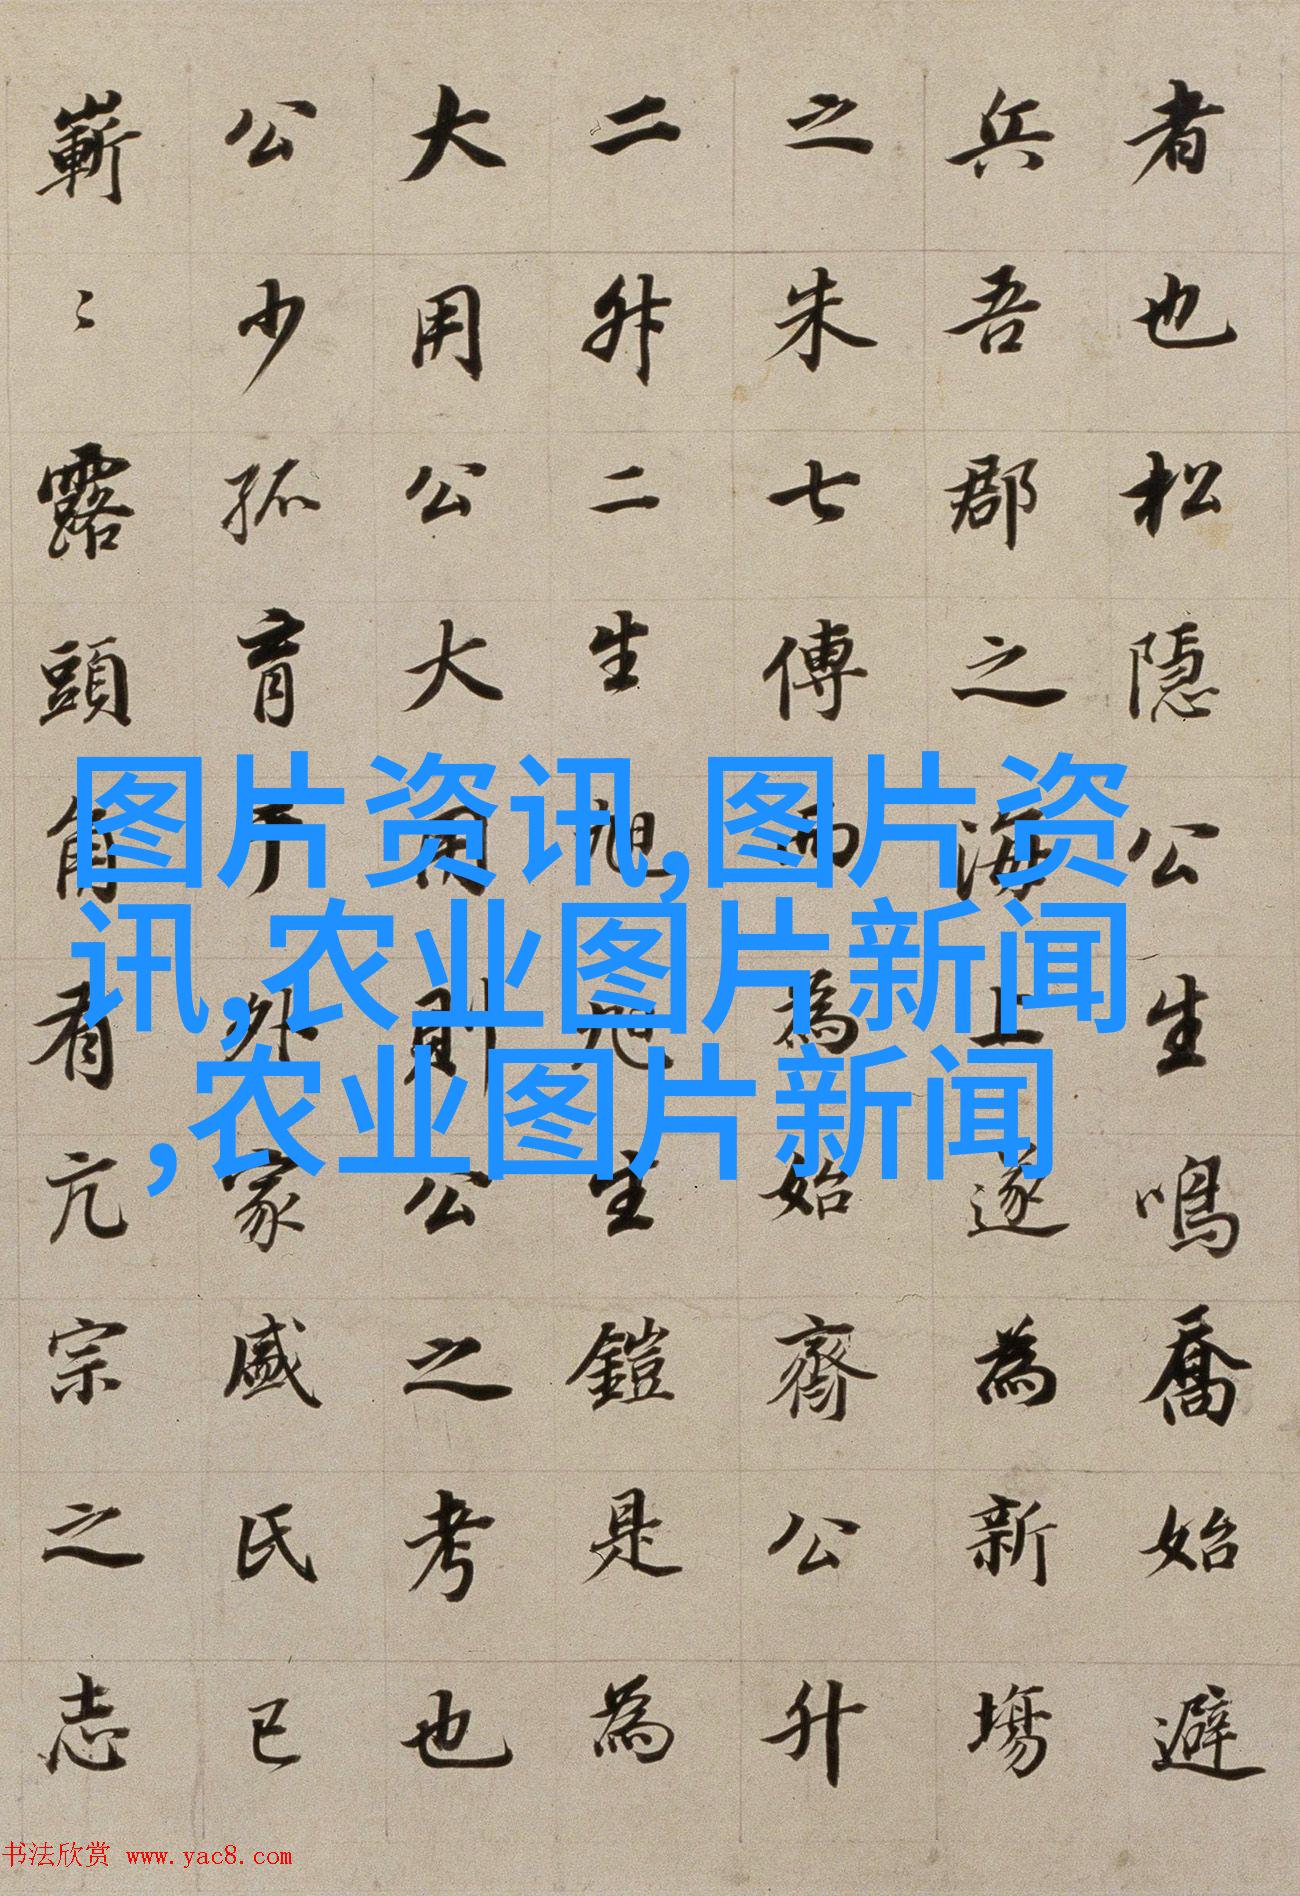 者也松隱公生鳴喬始避
兵吾郡之海上遂為新場
之朱七傳而為始齋公升
二升二生旭旭生鎧是為
大用公大用則公之考也
公少孤育于外家戚氏已
嶄〻露頭角有亢宗之志
图片资讯,图片资
讯,农业图片新闻
,农业图片新闻
书法欣赏 www.yac8.com